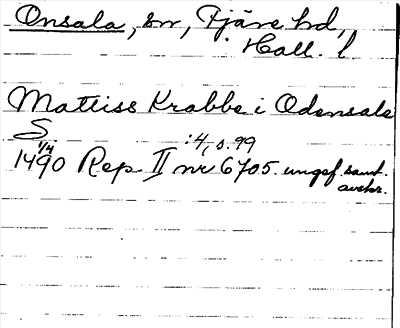 Onsala, sn, Fjäre hd,
Hall. l.
Mattiss Krabbe i Odensale
S
1/4 :4, s. 99
1490 Rep II nr 6705. ungef. samt.
avskr.